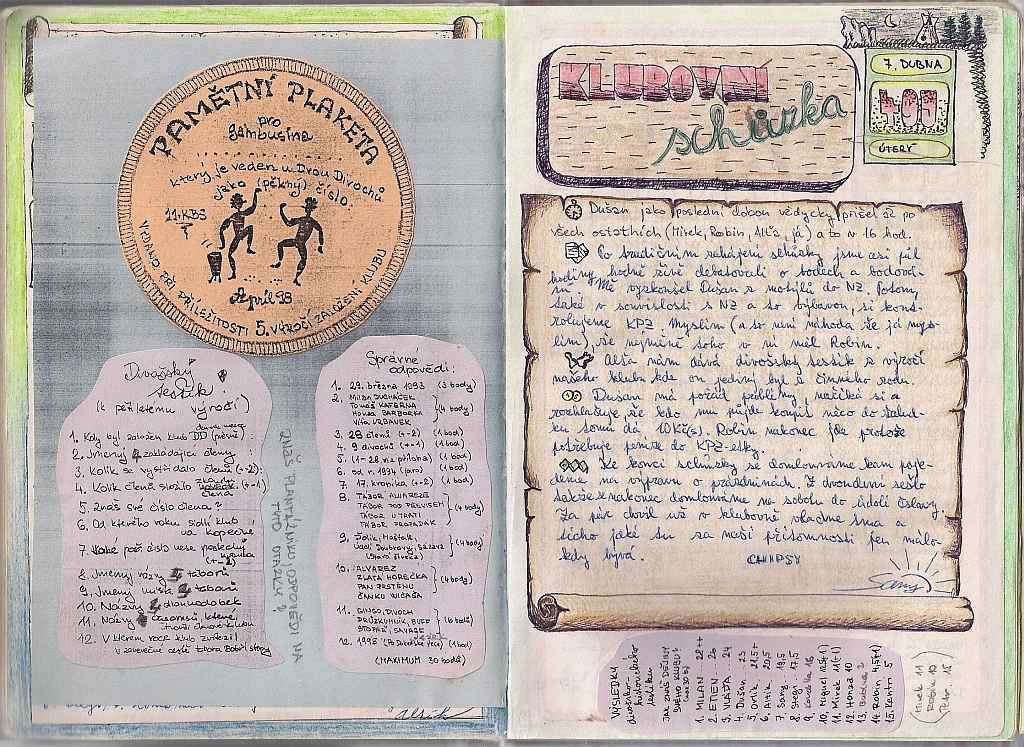 PAMĚTNÍ PLAKETA
pro
gambusína
který je veden u Dvou Divochů
jako (pěkný) číslo:
11. KBS
April 98
VYDÁNO PŘI PŘÍLEŽITOSTI 5. VÝROČÍ ZALOŽENÍ KLUBU
Divošský
testík:
(k pětiletému výročí)
1. Kdy byl založen klub DD (přesně):
2. Jmenuj 4 zakládající členy:
3. Kolik se vystřídalo členů (+-2):
4. Kolik členů složilo (+-1)
5. Znáš své číslo člena?
6. Od kterého roku sídlí klub
na Kopečné
7. Jaké poř. číslo nese poslední
kronika
(+-2)
8. Jmenuj názvy 4 táborů
9. Jmenuj místa 4 táborů
10. Názvy 4 dlouhodobek
11. Názvy časopisů, které
12. V kterém roce klub zvítězil
v závěrečné cestě tábora Bobří stopy
ZNÁŠ PLANTÁŽNÍKU, ODPOVĚDI NA
TYTO OTÁZKY?
Správné
odpovědi:
1. 29. března 1993 (3 body)
2. Milan DUCHÁČEK
Tomáš KAFERNA
Honza BARBORKA
Víťa URBÁNEK
(4 body)
3. 28 členů (+-2) (1 bod)
4. 9 divochů (+-1) (1 bod)
5. (1-28 viz příloha) (1 bod)
6. od r. 1994 (jaro) (1 bod)
7. 17. kronika (+-2) (1 bod)
8. TÁBOR ALVAREZE
TÁBOR POD PŘEVISEM
TÁBOR ÚTRATY
TÁBOR PROPADÁK
(4 body)
9. Sádik, Hošťák,
Údolí Doubravy, Sázava
(Stará řívnáč)
(4 body)
10. ALVAREZ
ZLATÁ HOREČKA
PÁN PRSTENŮ
ČANKU WICAŠA
(4 body)
11. GINGO, DIVOCH
DRUŽKUMNÍK, BUFF
STOPAŘ, SAVAGE
12. 1995 (1 bod)
(MAXIMUM 30 bodů)
KLUBOVNÍ
schůzka
7. DUBNA
ÚTERÝ
Dušan jako poslední dobou vždycky přišel až po
všech ostatních (Mirek, Robin, Alťa, já) a to v 16 hod.
Po tradičním zahájení schůzky jsme asi půl
hodiny hodně živě debatovali o bodech a bodová-
ní. Mě vyzkoušel Dušan z motýlů do NZ. Potom,
také v souvislosti s NZ a to výbavou, si kont-
rolujeme KPZ. Myslím (a to není náhoda že já mys-
lím), že nejméně toho v ní měl Robin.
Alťa nám dává divošský testík z výročí
našeho klubu kde on jediný byl z činného rodu.
Dušan má pořád problémy, natřiká si a
rozhlašuje, že kdo mu půjde koupit něco do žalud-
ku tomu dá 10 Kč(s). Robin nakonec jde protože
potřebuje peníze do KPZ-etky.
Ke konci schůzky se domlouváme kam poje-
deme na výpravu o prázdninách. Z dvoudenní sešlo
takže se nakonec domlouváme na sobotu do údolí Oslavy.
Za pár chvil už v klubovně vládne tma a
ticho jaké tu za naší přítomnosti jen málo-
kdy bývá.
CHIPSY
Samy
VÝSLEDKY
divošsko-
historického
testíku
JAK ZNÁŠ DĚJINY
SVÉHO KLUBU?
(max 30 b)
1. MILAN 28 +
2. ETIEN 26
3. VLAĎA 24
4. Dušan 23
5. Ovík 21,5+
6. Attik 20,5
7. Samy 19,5
8. Stegi 17,5
10. Miguel
11. Mirek
12. Honza 10
14. Robin 4,5
15. Kantri 5
Mirek 11
Robin 10
Petr 15